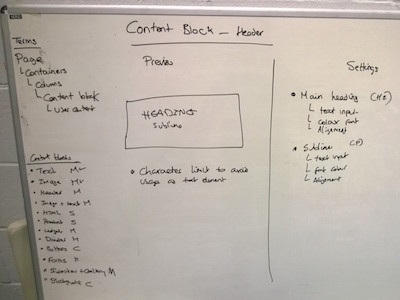 Content Block - Header
Terms
Page
Containers
Colums
Content block
User content
Content blocks
Text M
Image M
Header M
Image + text M
HTML S
Product S
Widget M
Divider M
Buttons C
Forms M
Slideshow + Gallery M
Blockquote C
Preview
HEADING
Subline
Character limit to avoid
usage as text element
Settings
Main heading (H2)
text input
Colour font
Alignment
Subline (P)
text input
font colour
Alignment